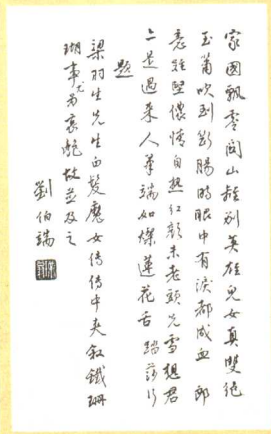 家國飄零關山輕別英雄兒女真雙絕
玉簫吹到斷腸時眼中有淚都成血 郎
意難堅儂情自熱紅顏未老頭先雪想君
亦是過來人筆端如燦蓮花舌 踏莎行
題
梁羽生先生白髮魔女傳傳中夾敘鐵珊
瑚事尤為哀艷故並及之
劉伯端